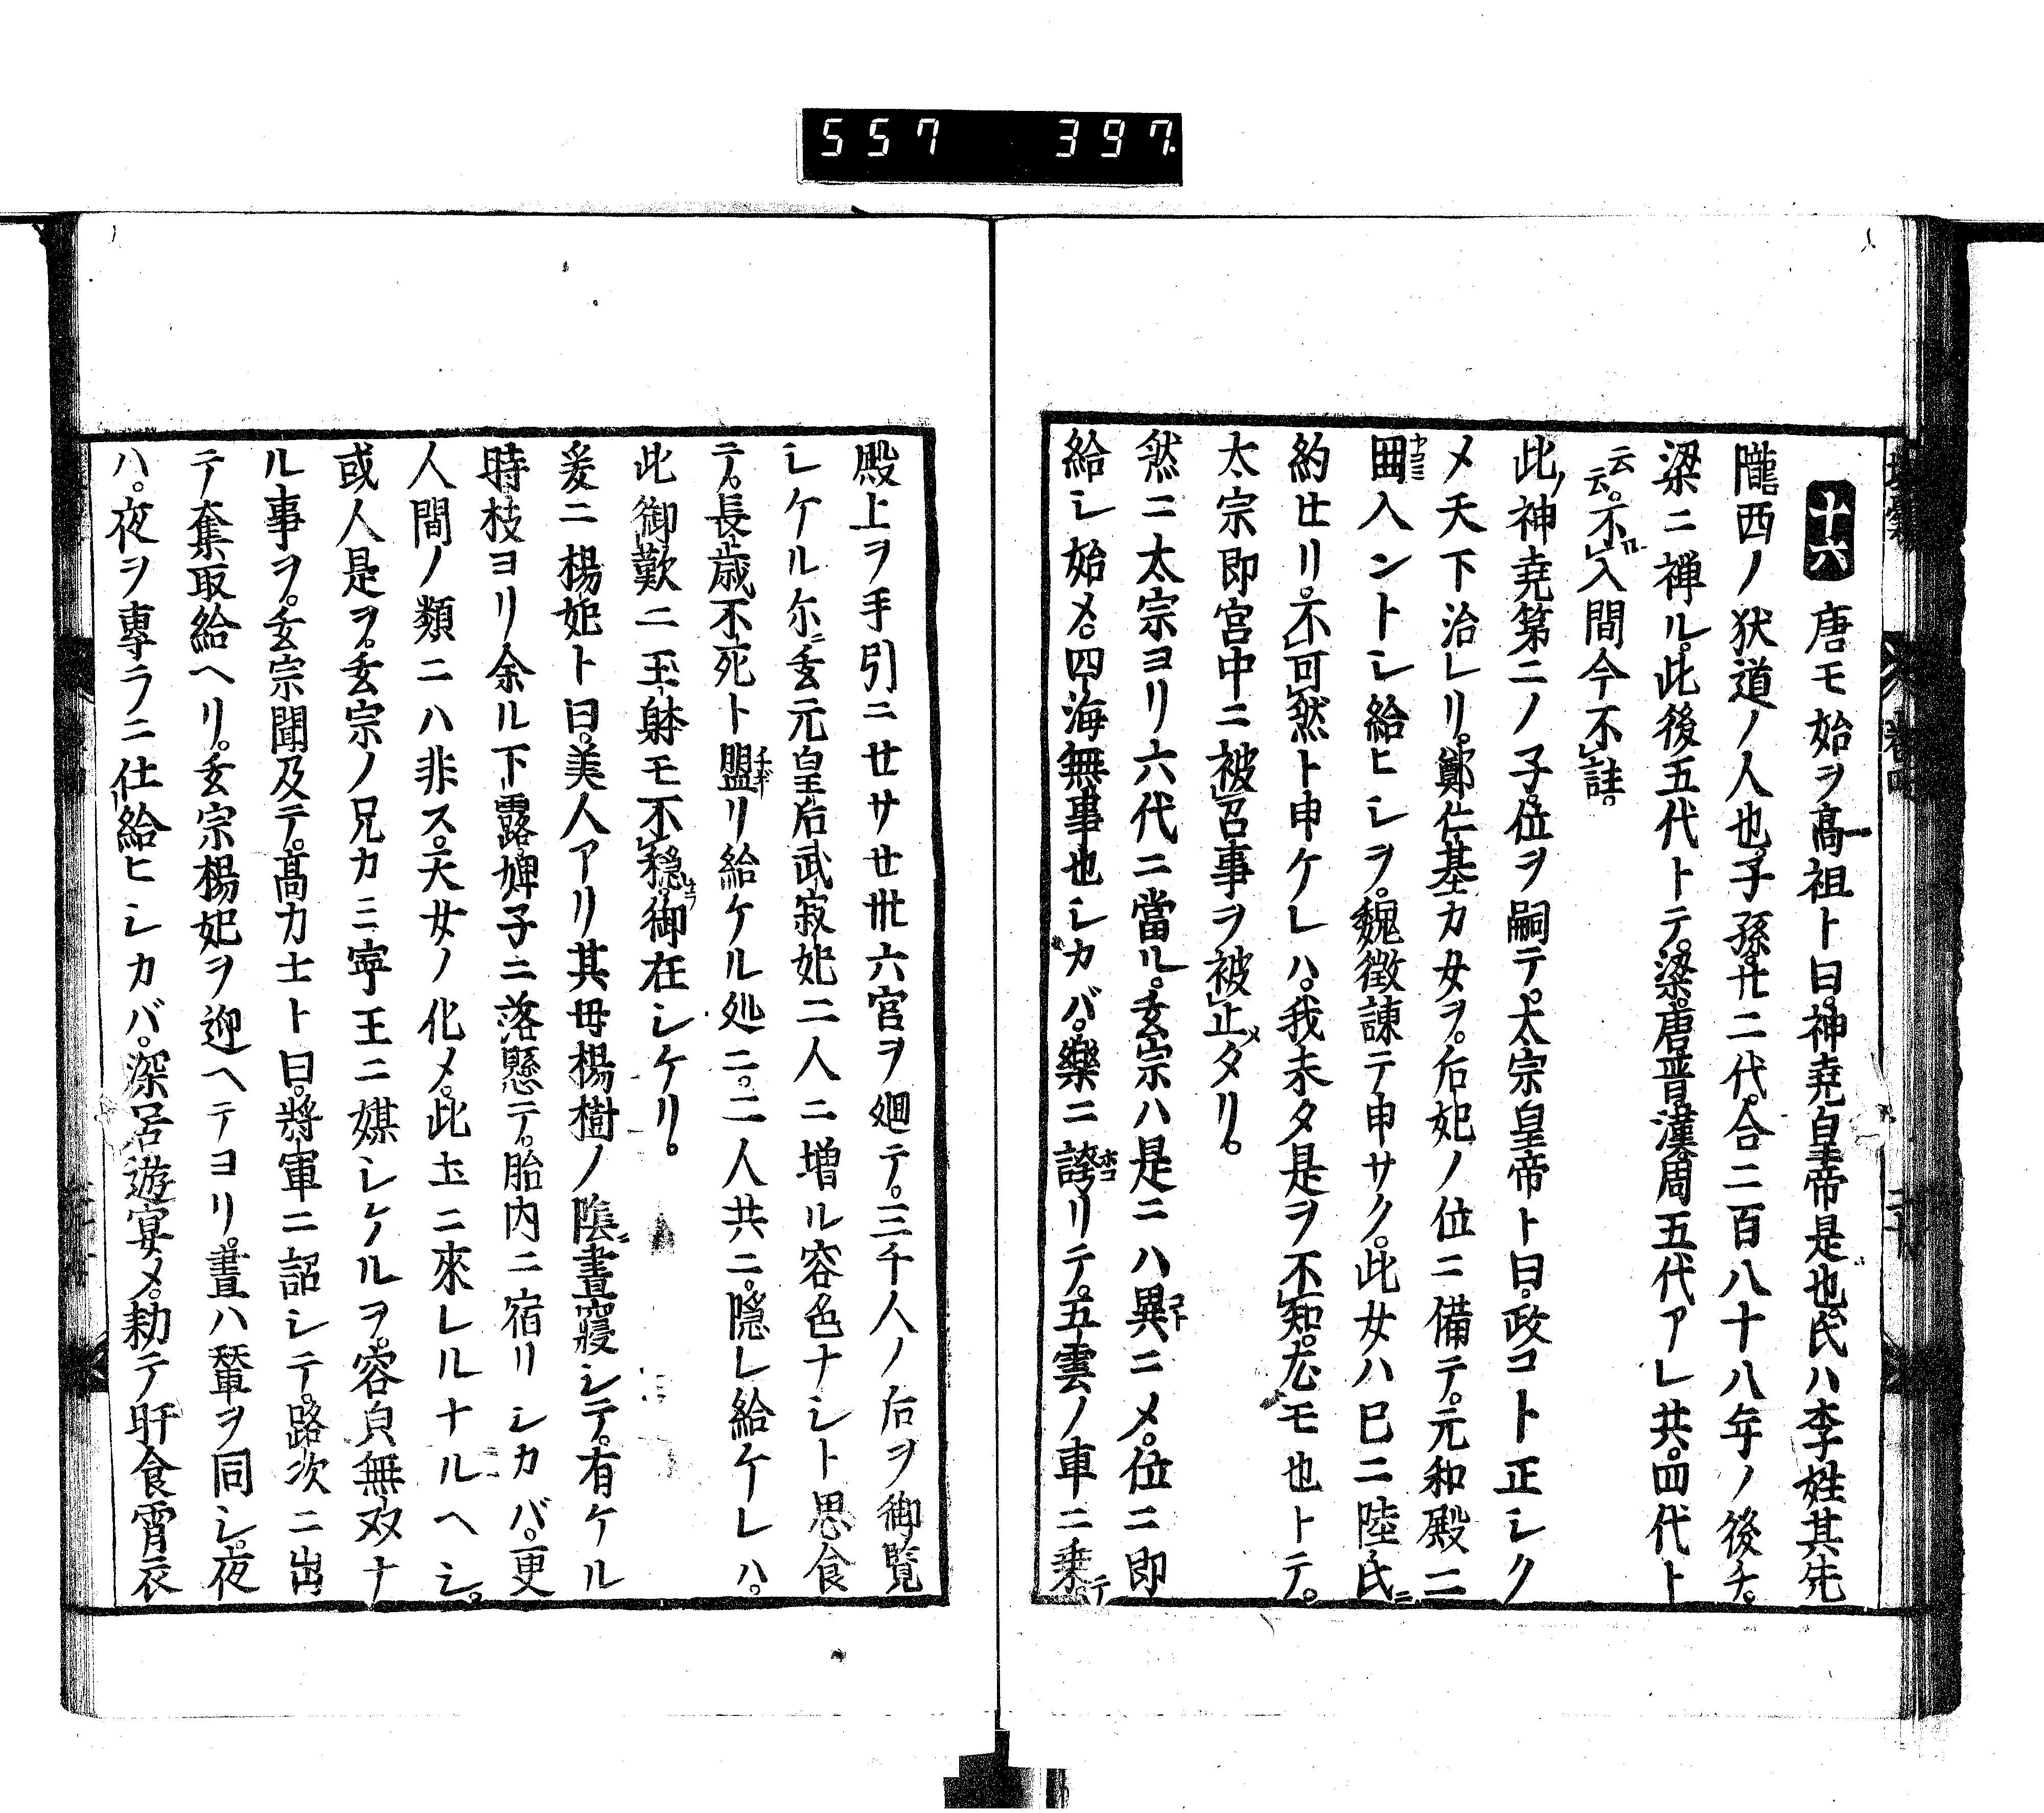 557 397.
十六 唐モ始ヲ髙祖ト曰。神尭皇帝是也。氏ハ李姓其先
隴西ノ狄道ノ人也。子孫。廿二代。合二百八十八年ノ後チ。
梁ニ禅ル。此後五代トテ。梁。唐。晋。漢。周。五代アレ共。四代ト
云云。不入間今不註。
此神尭第二ノ子。位ヲ嗣テ。太宗皇帝ト曰。政コト正シク
メ天下治レリ。鄭仁基カ女ヲ。后妃ノ位ニ備テ。元和殿ニ
囲入ントシ給ヒシヲ。魏徴諌テ申サク。此女ハ巳ニ陸氏ニ
約せリ。不可然ト申ケレハ。我未タ是ヲ不知。尤モ也トテ。
太宗即宮中ニ被召事ヲ被止タリ。
然ニ太宗ヨリ六代ニ當ル。玄宗ハ是ニハ異ニメ。位ニ即
給シ始メ。四海無事也シカバ。樂ニ誇リテ。五雲ノ車ニ乗テ
殿上ヲ手引ニせサせ丗六宮ヲ廻テ。三千人ノ后ヲ御覧
シケル尓。玄元皇后武寂妃二人ニ増ル容色ナシト思食
テ。長歳不死ト盟リ給ケル処ニ。二人共ニ。隠レ給ケレハ。
此御歎ニ玉躰モ不穏。御在シケリ。
爰ニ楊妃ト曰。美人アリ其母楊樹ノ陰晝寝シテ。有ケル
時枝ヨリ余ル下露。婢子ニ落懸テ。胎内ニ宿リシカバ。更
人間ノ類ニハ非ス。天女ノ化メ。此土ニ來レルナルヘシ。
或人是ヲ。玄宗ノ兄カ三寧王ニ媒シケルヲ。容㒵無双ナ
ル事ヲ。玄宗聞及テ。髙力士ト曰。將軍ニ詔シテ。路次ニ出
テ奪取給ヘリ。玄宗楊妃ヲ迎ヘテヨリ。晝ハ輦ヲ同シ。夜
ハ。夜ヲ專ラニ仕給ヒシカバ。深宮遊宴メ。勅テ旰食霄衣